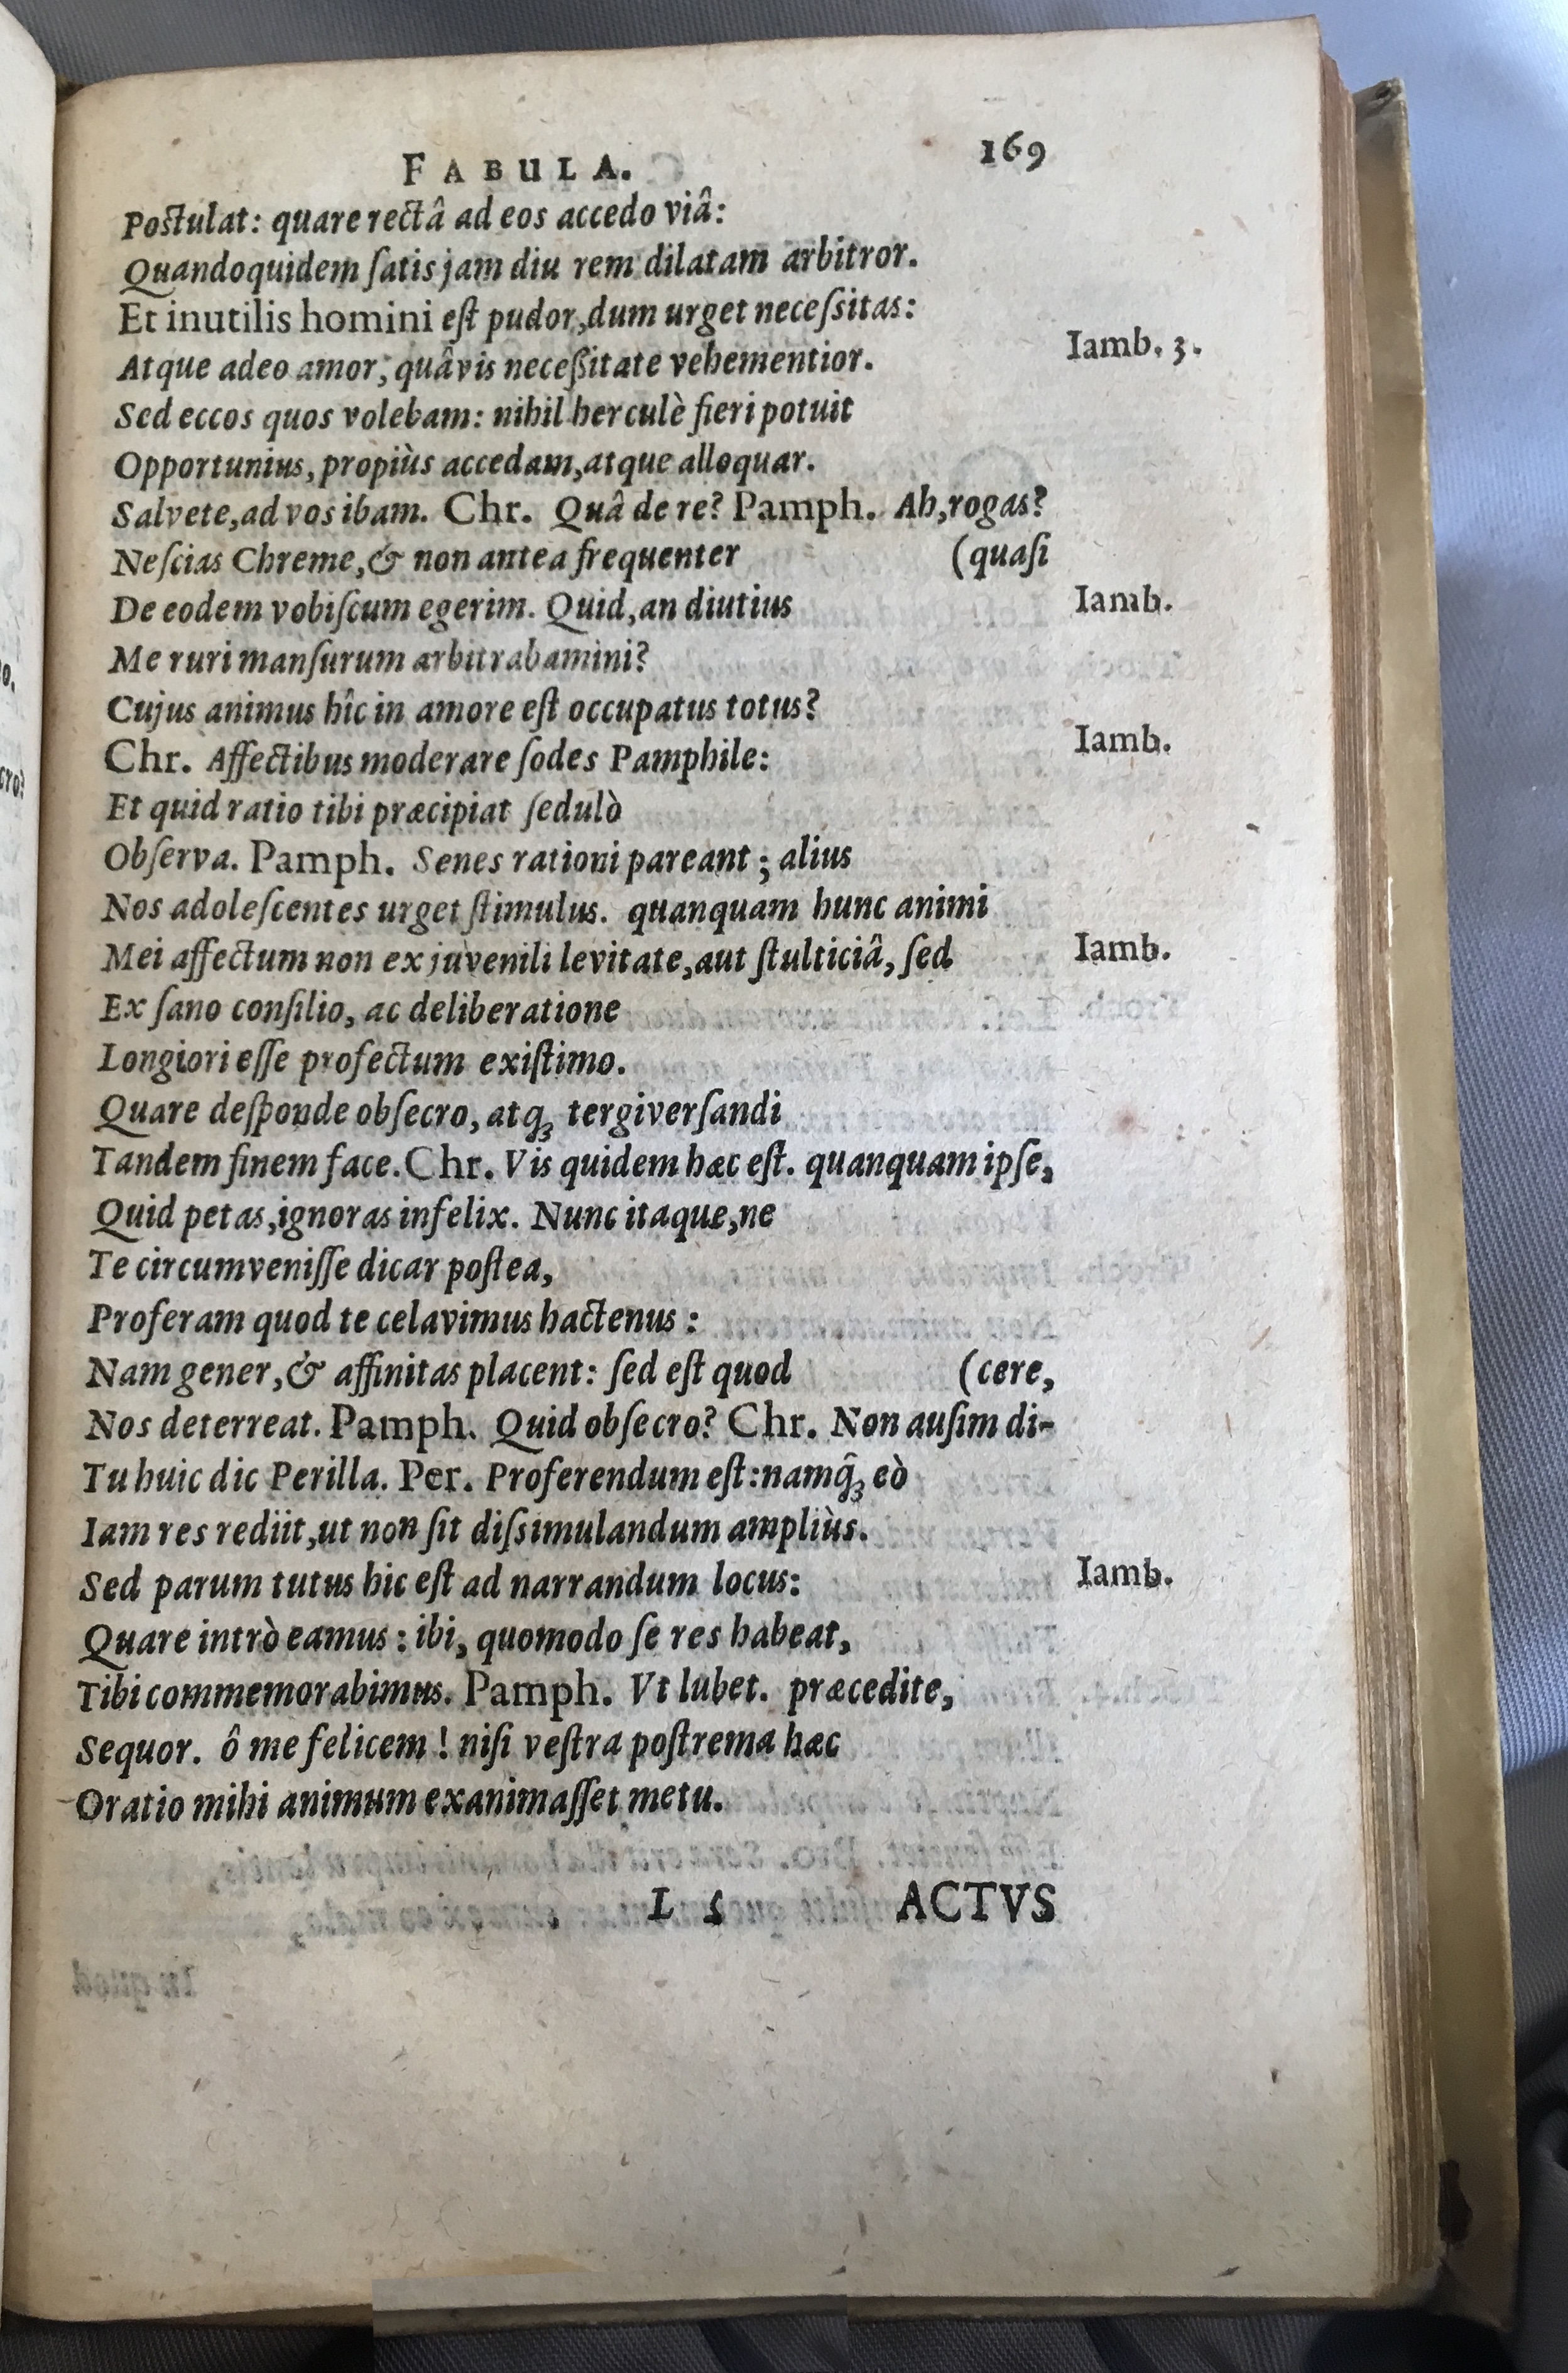 FABULA. 169
Postulat: quare rectâ ad eos accedo viâ:
Quandoquidem ſatis jam diu rem dilatam arbitror.
Et inutilis homini eſt pudor, dum urget neceſsitas:
Atque adeo amor, quâvis neceßitate vehementior. Iamb. 3.
Sed eccos quos volebam: nihil herculè fieri potuit
Opportunius, propiùs accedam, atque alloquar.
Salvete, ad vos ibam. Chr. Quâ de re? Pamph. Ah, rogas?
Neſcias Chreme, & non antea frequenter (quaſi
De eodem vobiſcum egerim. Quid, an diutius Iamb.
Me ruri manſurum arbitrabamini?
Cujus animus hîc in amore eſt occupatus totus?
Chr. Affectibus moderare ſodes Pamphile: Iamb.
Et quid ratio tibi præcipiat ſedulò
Obſerva. Pamph. Senes rationi pareant; alius
Nos adoleſcentes urget ſtimulus. quanquam hunc animi
Mei affectum non ex juvenili levitate, aut ſtulticiâ, ſed Iamb.
Ex ſano conſilio, ac deliberatione
Longiori eſſe profectum exiſtimo.
Quare deſponde obſecro, atq; tergiverſandi
Tandem finem face. Chr. Vis quidem hæc eſt. quanquam ipſe,
Quid petas, ignoras infelix. Nunc itaque, ne
Te circumveniſſe dicar poſtea,
Proferam quod te celavimus hactenus:
Nam gener, & affinitas placent: ſed eſt quod (cere,
Nos deterreat. Pamph. Quid obſecro? Chr. Non auſim di-
Tu huic dic Perilla. Per. Proferendum eſt: namq́; eò
Iam res rediit, ut non ſit diſsimulandum ampliùs.
Sed parum tutus hic eſt ad narrandum locus: Iamb.
Quare intrò eamus: ibi, quomodo ſe res habeat,
Tibi commemorabimus. Pamph. Vt lubet. præcedite,
Sequor. ô me felicem! niſi veſtra poſtrema hæc
Oratio mihi animum exanimaſſet metu.
L 5 ACTVS